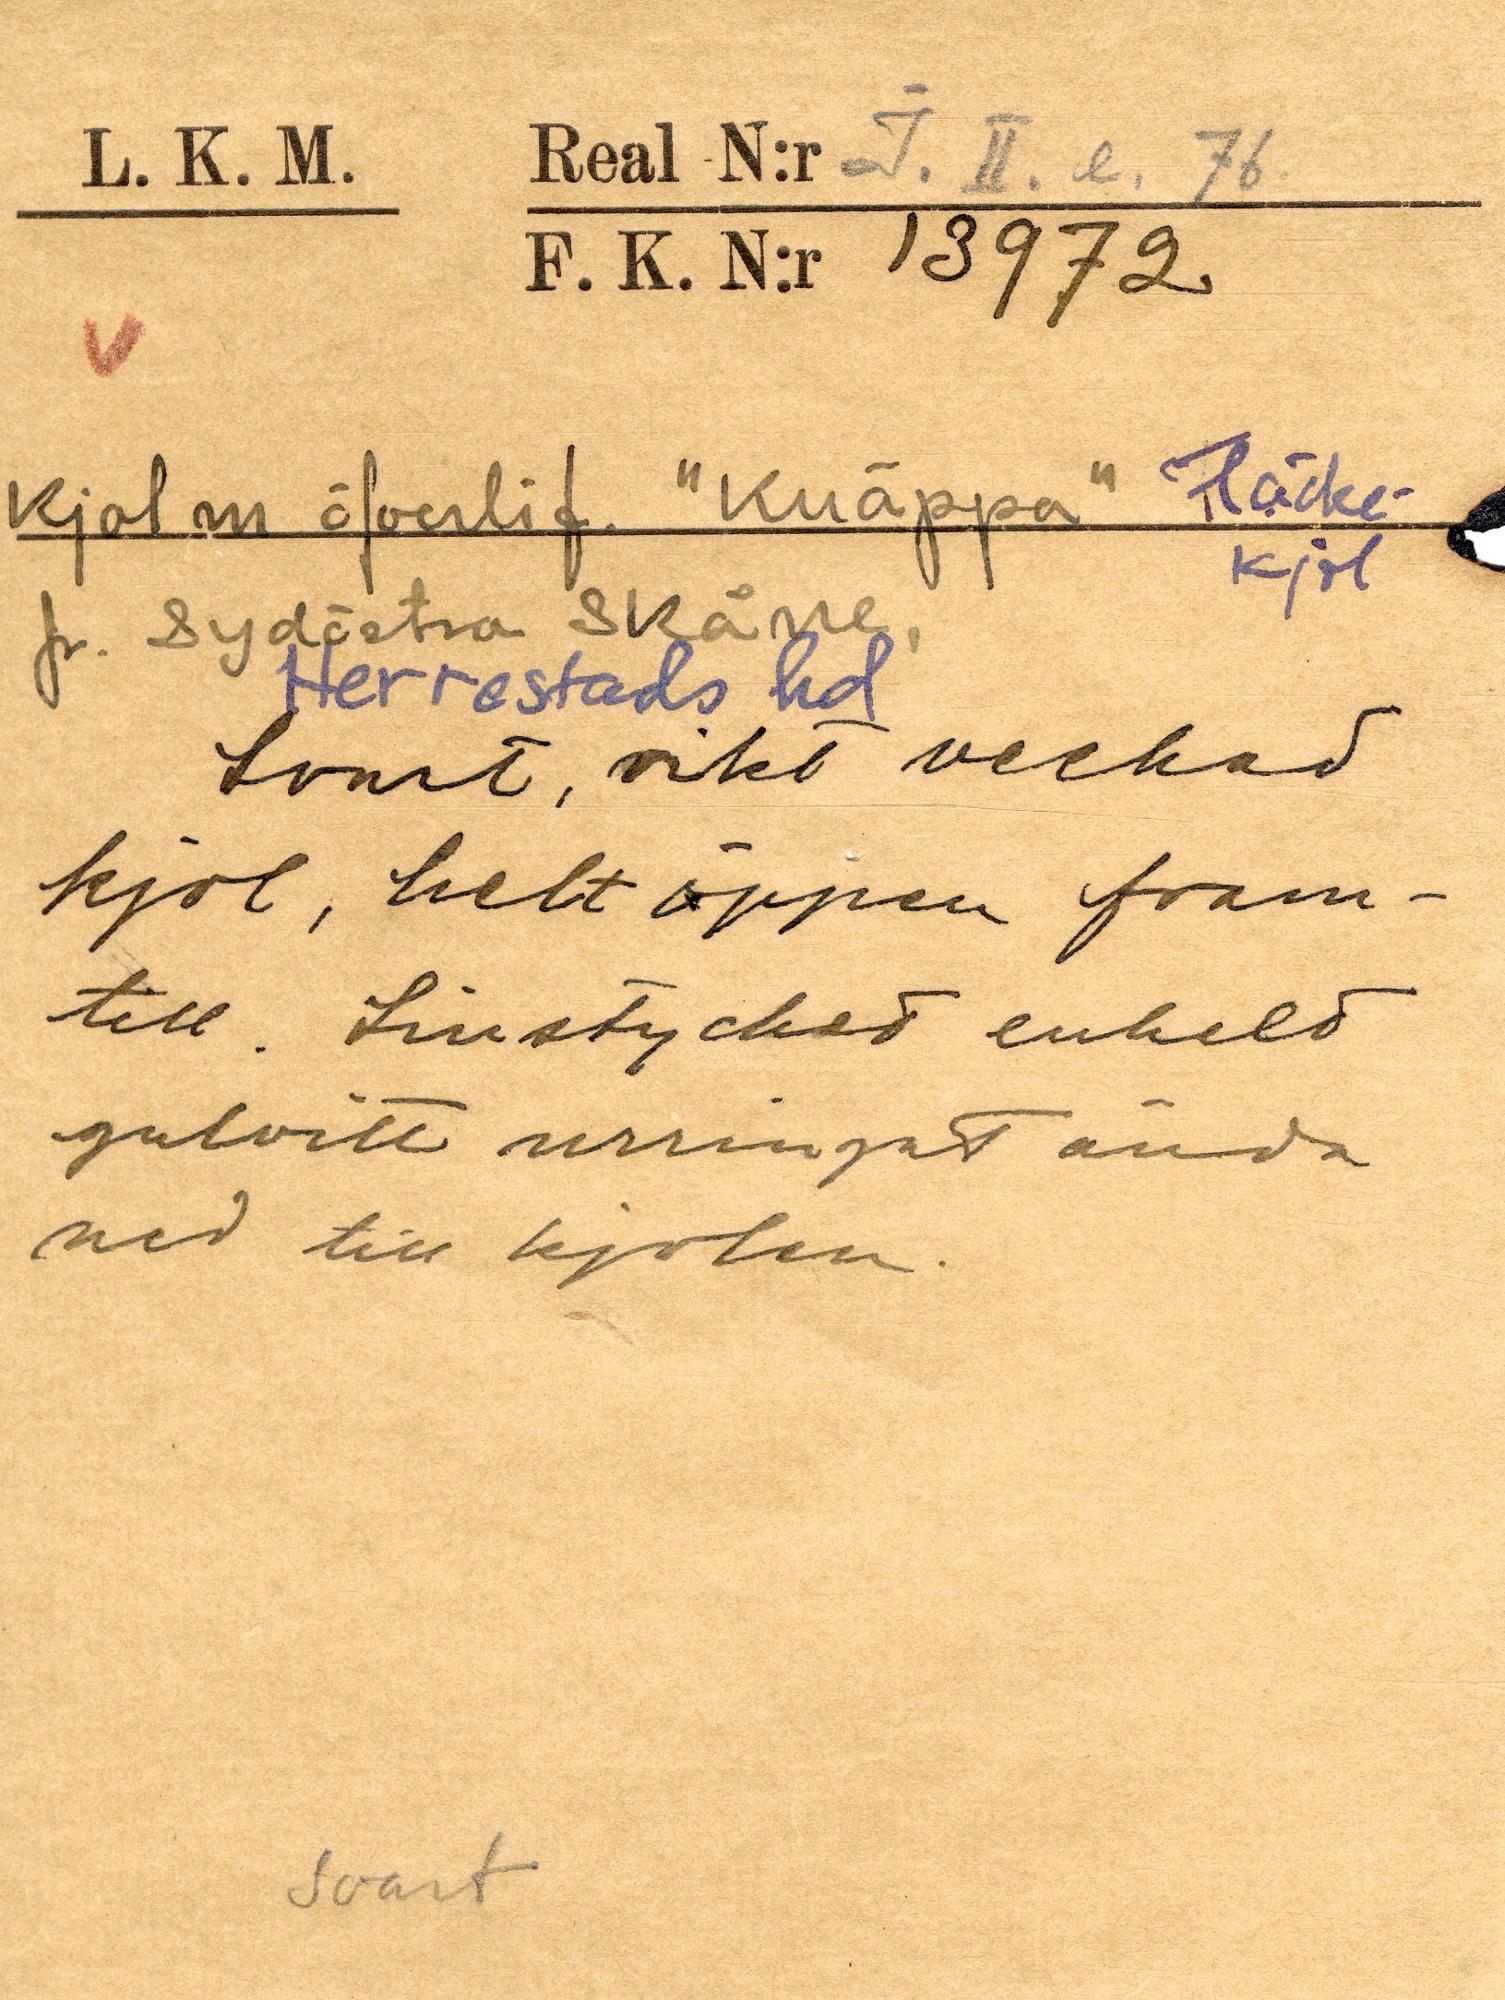 L. K. M.
Real N:r J. II. e. 76.
F. K. N:r 13972.
V
Kjol m öfverlif. "Knäppa" Häcke-
kjol
fr. Sydöstra Skåne,
Herrestads hd
Svart, rikt veckad
kjol, helt öppen fram-
till. Livstycked enkelt
gulvitt urringat ända
ned till kjolen.
Svart